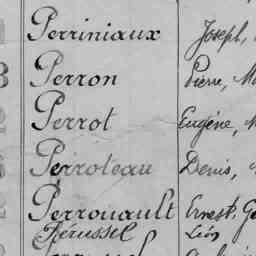 Perriniaux Joseph,
Perron Pierre, M
Perrot Eugène, M
Perroteau Denis,
Perrouault Ernest. Ge
Pérussel Léon